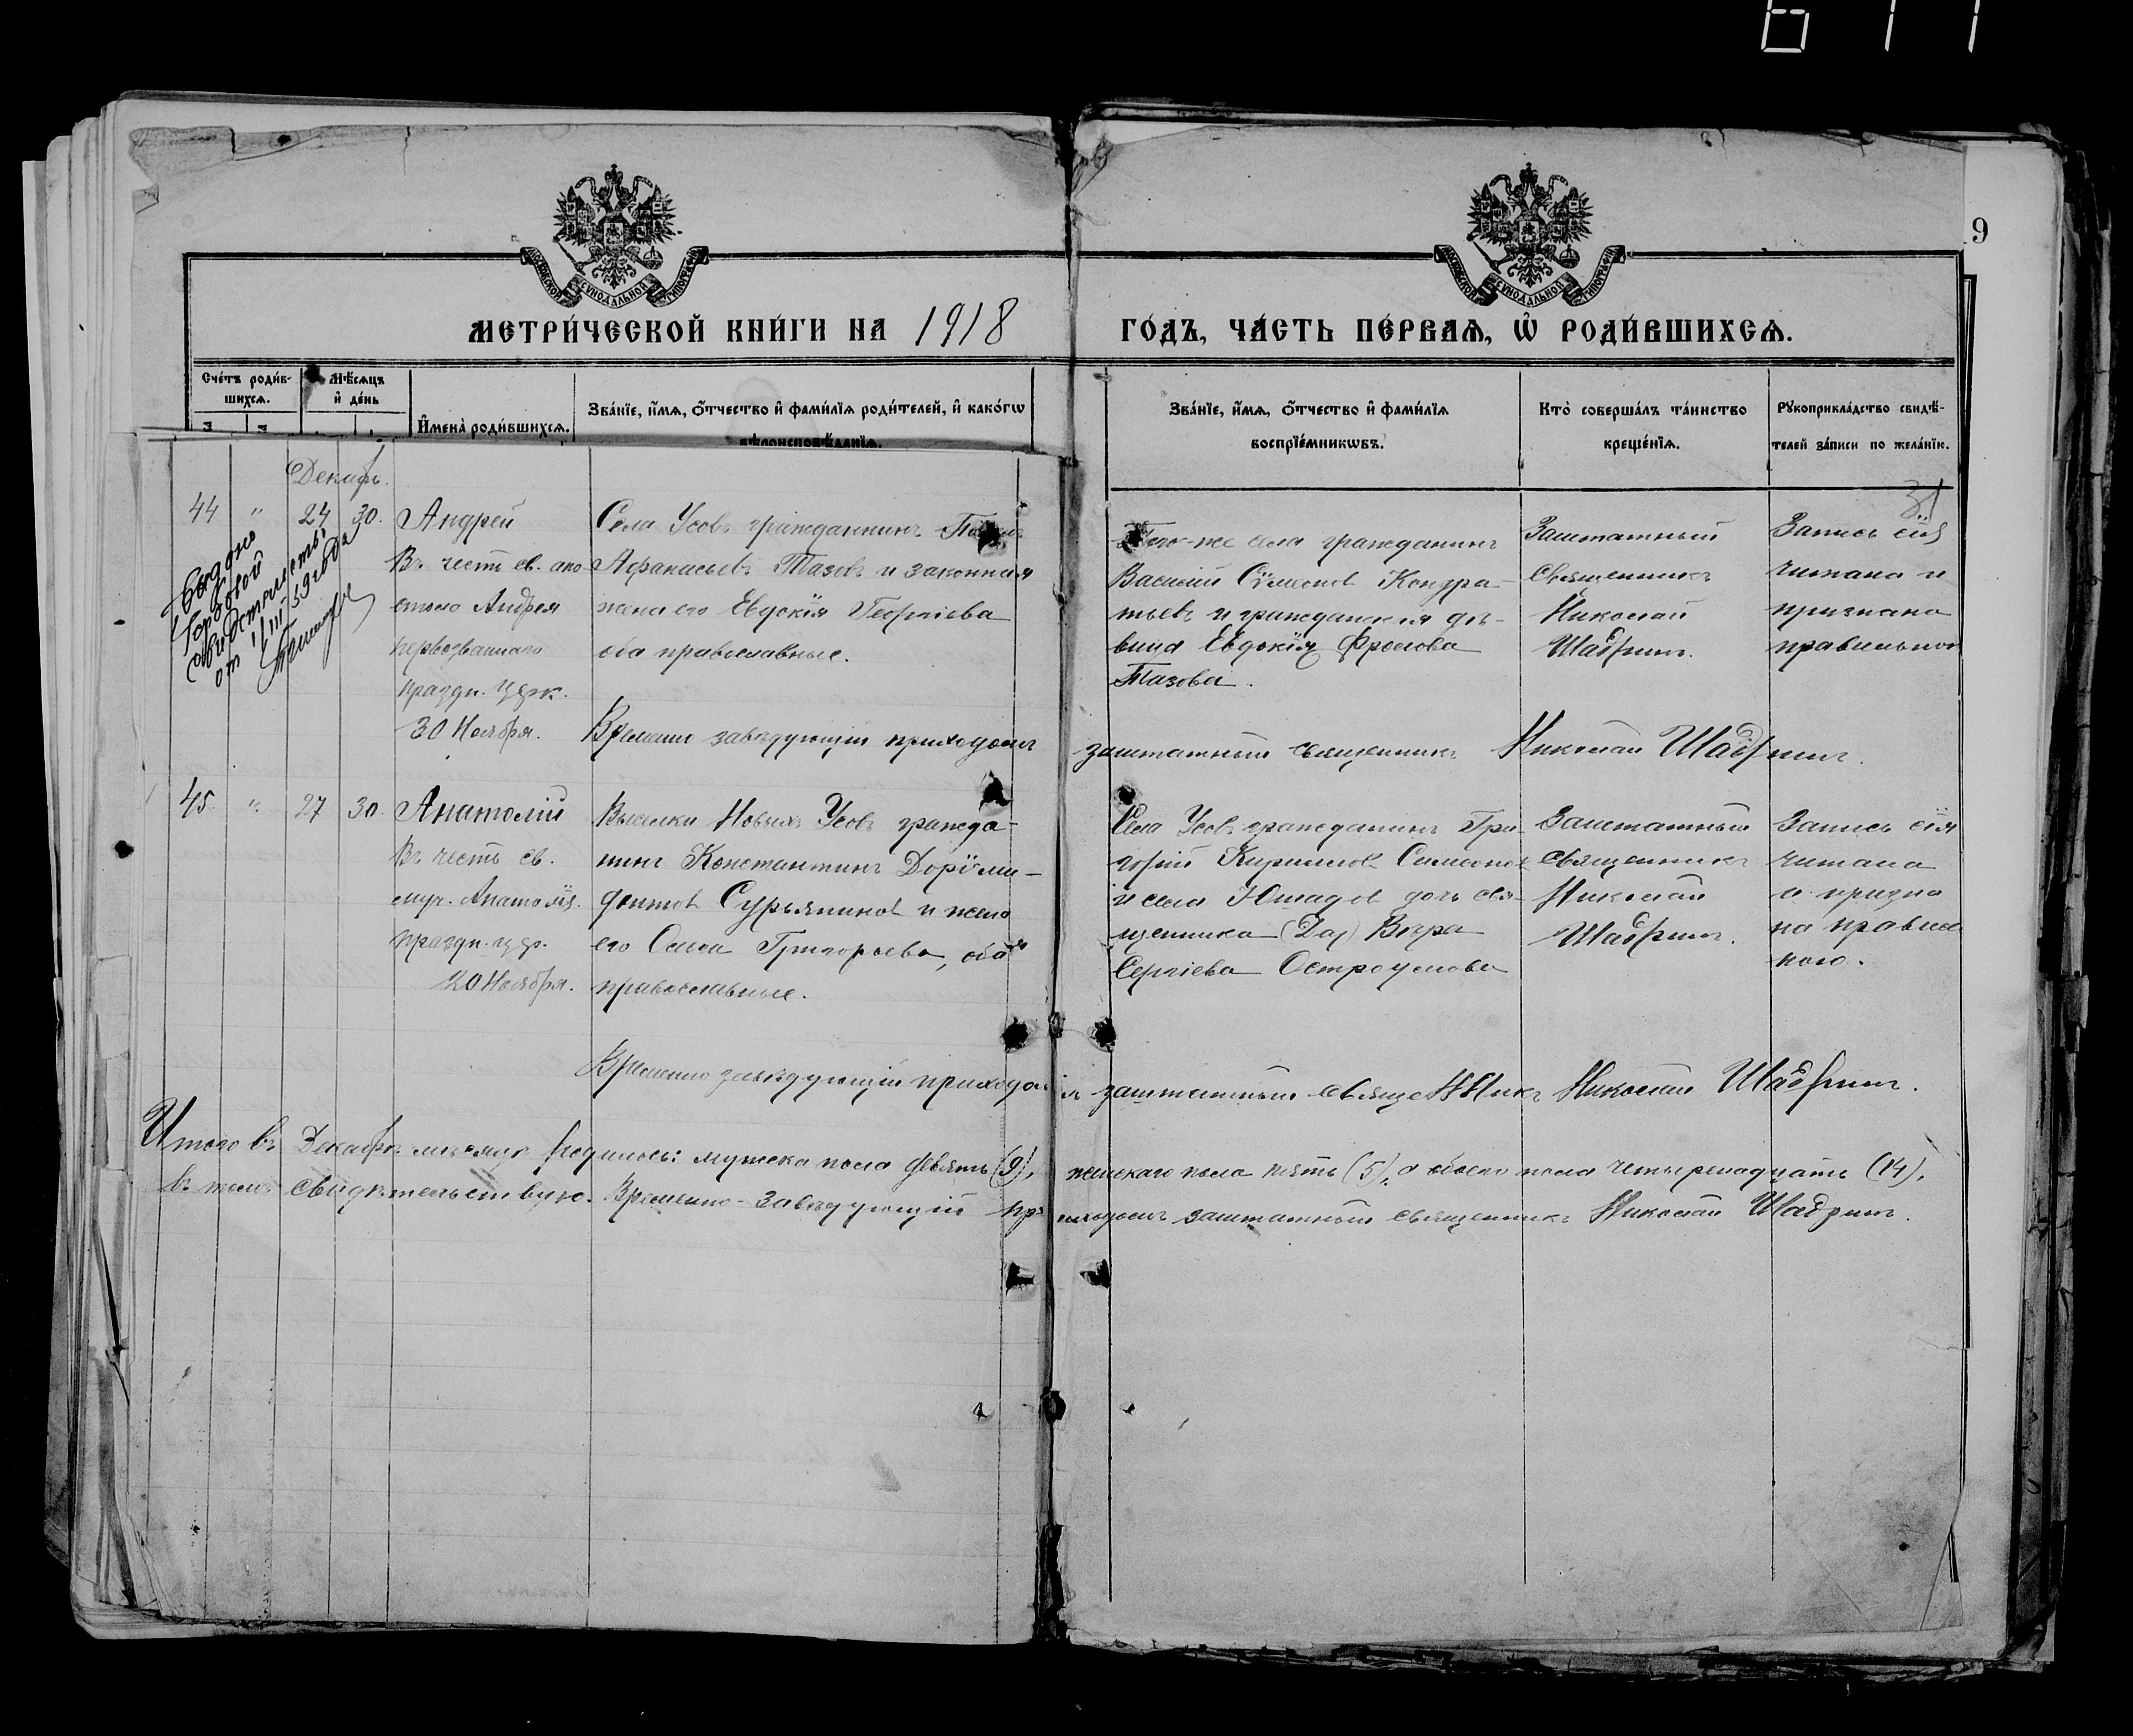 611
9
МОСКОВСКОЙ СУНОДАЛЬНОЙ ТИПОГРАФІИ
МОСКОВСКОЙ СУНОДАЛЬНОЙ ТИПОГРАФІИ
МЕТРИ́ЧЕСКОЙ КНИ́ГИ НА 1918 ГО́ДЪ, ЧА́СТЬ ПЕ́РВАѦ, Ѡ҆ РОДИ́ВШИХСѦ.
Сче́тъ роди́в-
шихсѧ.
Мѣ́сѧцъ
и҆ де́нь
И҆мена̀ роди́вшихсѧ.
Зва́нїе, и҆́мѧ, ѻ҆́тчество и҆ фами́лїѧ роди́телей, и҆ како́гѡ
вѣроисповѣ́данїѧ.
Зва́нїе, и҆́мѧ, ѻ҆́тчество и҆ фами́лїѧ
воспрїе́мникѡвъ.
Кто̀ соверша́лъ та́инство
креще́нїѧ.
Рꙋкоприкла́дство свидѣ́-
телей за́писи по жела́нїю.
31
Декабр.
44 " 24 30.
Андрей
Въ честь св. апо-
стола Андрея
первозваннаго
праздн. церк.
30 Ноября.
Села Усовъ гражданинъ
Афанасьевъ Тазовъ и законная
жена его Евдокія Георгіева
оба православные.
Того-же села гражданинъ
Василій Сѵмеоновъ Кондра-
тьевъ и гражданская дѣ-
вица Евдокія Фролова
Тазова.
Заштатный
Священникъ
Николай
Шабринъ.
Запись сія
читана и
признана
правильной
Выдано
Гербовой
свидетельств.
от 1/III 39 года
Временно завѣдующій приходомъ заштатный священникъ Николай Шабринъ.
45. " 27 30.
Анатолій
Въ честь св.
муч. Анатолія.
праздн. цер.
20 Ноября.
Выселки Новыхъ Усовъ гражда-
нинъ Константинъ Дориме-
донтовъ Сурьяниновъ и жена
его Ольга Григорьева, оба
православные.
Села Усовъ гражданинъ Гри-
горій Кирилловъ Симеоновъ
и села Юшадовъ дочь свя-
щенника Вѣра
Сергіева Остроумова
Заштатный
священникъ
Николай
Шабринъ.
Запись сія
читана
и призна
на правиль
ною.
Временно завѣдующій приходомъ заштатный священникъ Николай Шабринъ.
Итого въ Декабрѣ мѣсяцѣ родилось: мужеска пола девять (9), женскаго пола пять (5), а обоего пола четырнадцать (14),
въ томъ свидѣтельствую. Временно-завѣдующій приходомъ заштатный священникъ Николай Шабринъ.